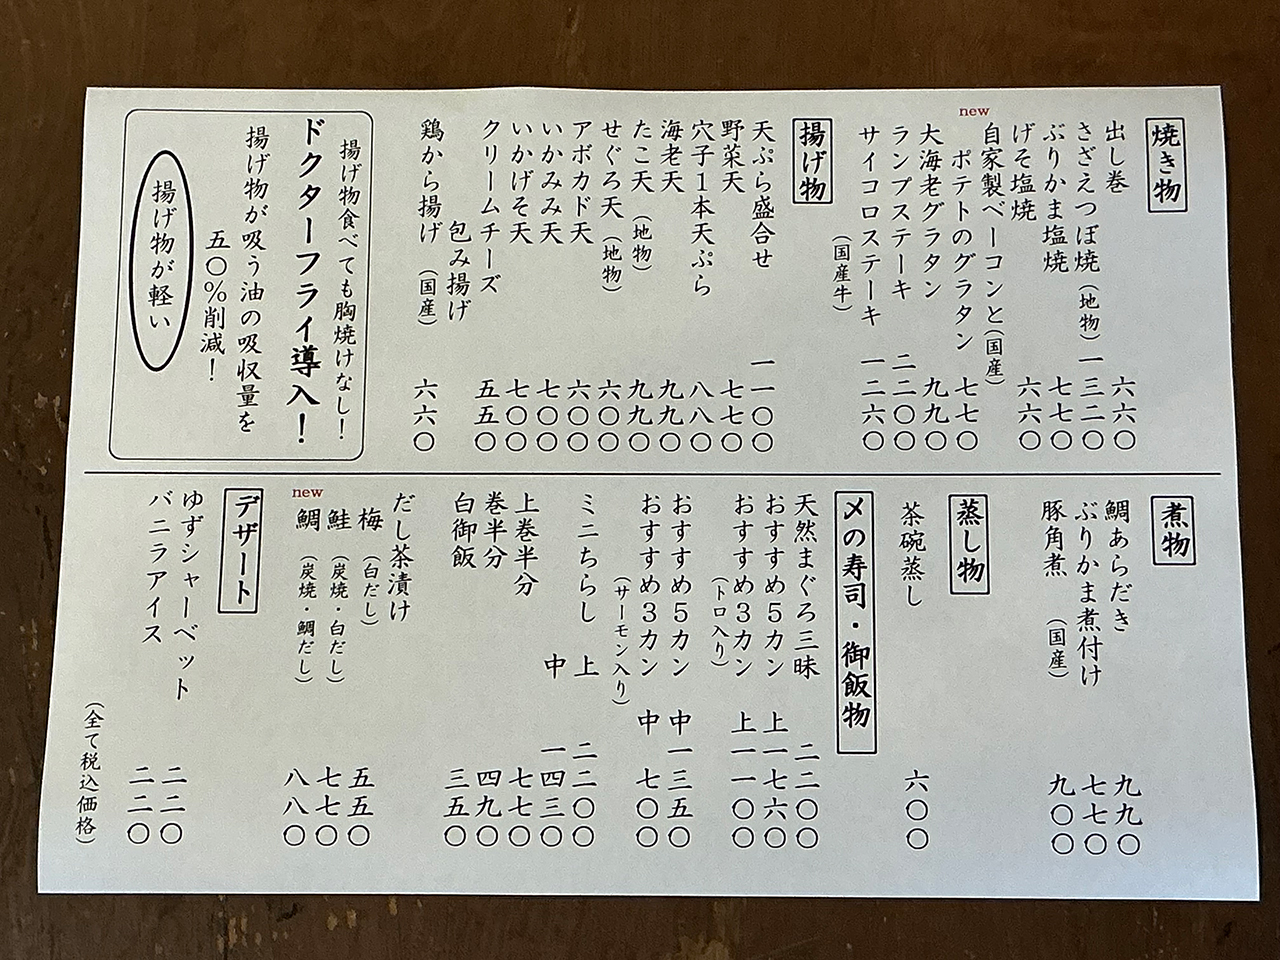 焼き物
出し巻 六六〇
さざえつぼ焼(地物) 一三二〇
ぶりかま塩焼 七七〇
げそ塩焼 六六〇
new
自家製ベーコンと(国産)
ポテトのグラタン 七七〇
大海老グラタン 九九〇
ランプステーキ 二二〇〇
サイコロステーキ 一二六〇
(国産牛)
揚げ物
天ぷら盛合せ 一一〇〇
野菜天 七七〇
穴子1本天ぷら 八八〇
海老天 九九〇
たこ天(地物) 九九〇
せぐろ天(地物) 六〇〇
アボカド天 六〇〇
いかみみ天 七〇〇
いかげそ天 七〇〇
クリームチーズ 五五〇
包み揚げ
鶏から揚げ(国産) 六六〇
揚げ物食べても胸焼けなし!
ドクターフライ導入!
揚げ物が吸う油の吸収量を
五〇%削減!
揚げ物が軽い
煮物
鯛あらだき 九九〇
ぶりかま煮付け 七七〇
豚角煮(国産) 九〇〇
蒸し物
茶碗蒸し 六〇〇
〆の寿司・御飯物
天然まぐろ三昧 二二〇〇
おすすめ5カン 上 一七六〇
おすすめ3カン 上 一一〇〇
(トロ入り)
おすすめ5カン 中 一三五〇
おすすめ3カン 中 七〇〇
(サーモン入り)
ミニちらし 上 二二〇〇
中 一四三〇
上巻半分 七七〇
巻半分 四九〇
白御飯 三五〇
だし茶漬け
梅(白だし) 五五〇
鮭(炭焼・白だし) 七七〇
new
鯛(炭焼・鯛だし) 八八〇
デザート
ゆずシャーベット 二二〇
バニラアイス 二二〇
(全て税込価格)